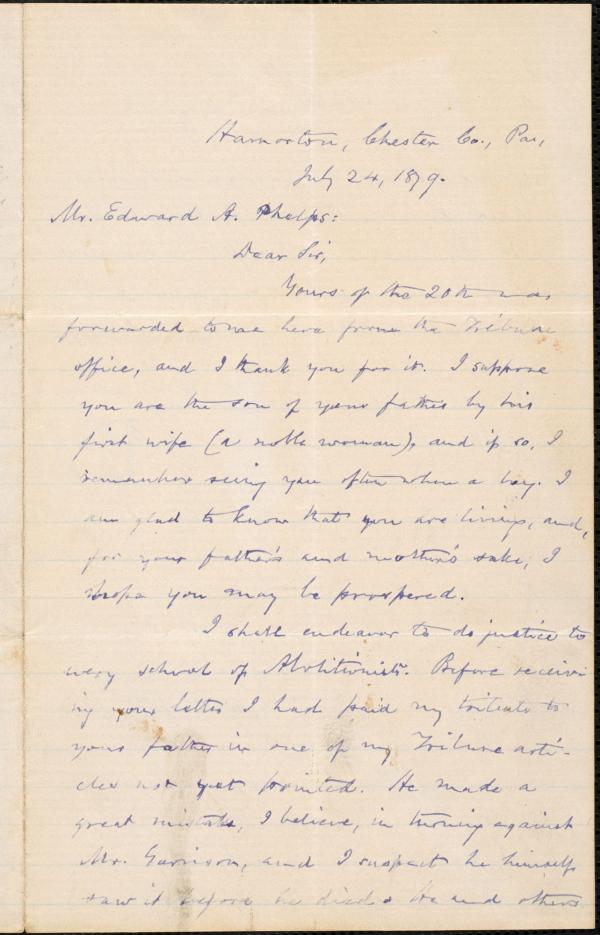 Hamorton, Chester Co., Pa.,
July 24, 1879.
Mr. Edward A. Phelps:
Dear Sir,
Yours of the 20th was
forwarded to me here from the Tribune
office, and I thank you for it. I suppose
you are the son of your father by his
first wife (a noble woman), and if so, I
remember seeing you often when a boy. I
am glad to know that you are living, and,
for your father's and mother's sake, I
hope you may be prospered.
I shall endeavor to do justice to
every school of Abolitionists. Before receiv-
ing your letter I had paid my tribute to
your father in one of my Tribune arti-
cles not yet printed. He made a
great mistake, I believe, in turning against
Mr. Garrison, and I suspect he himself
saw it before he died. He and others